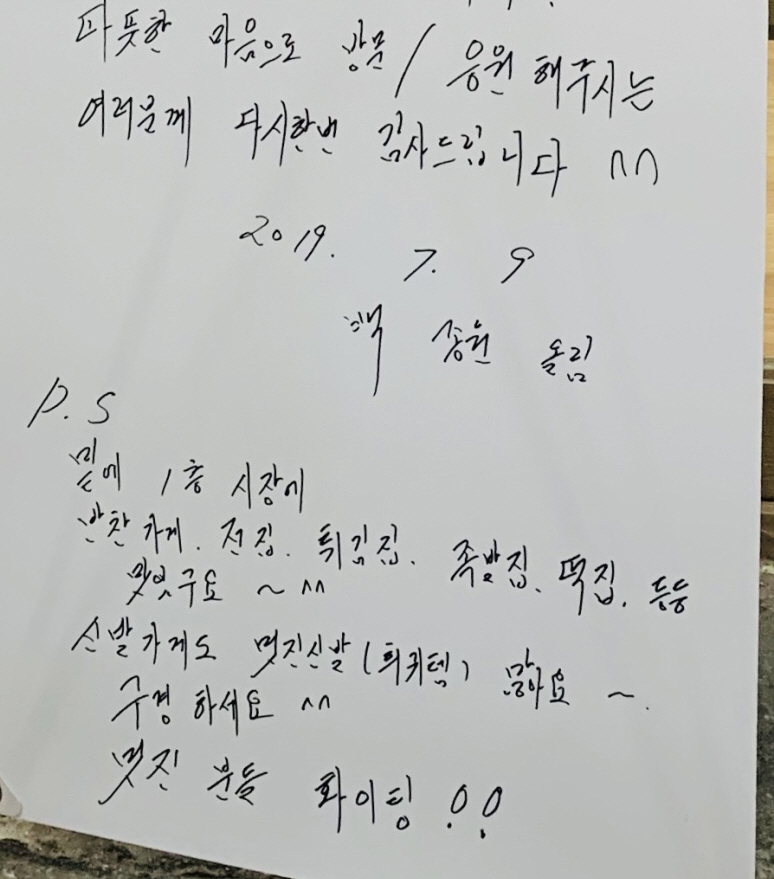 따뜻한 마음으로 방문/응원 해주시는
여러분께 다시한번 감사드립니다 ^^
2019. 7. 9
백종원 올림
P.S
밑에 1층 시장에
반찬가게. 전집. 튀김집. 족발집. 떡집. 등등
맛있구요 ~ ^^
신발가게도 멋진신발(희귀템) 많아요 ~.
구경 하세요 ^^
멋진 분들 화이팅!!